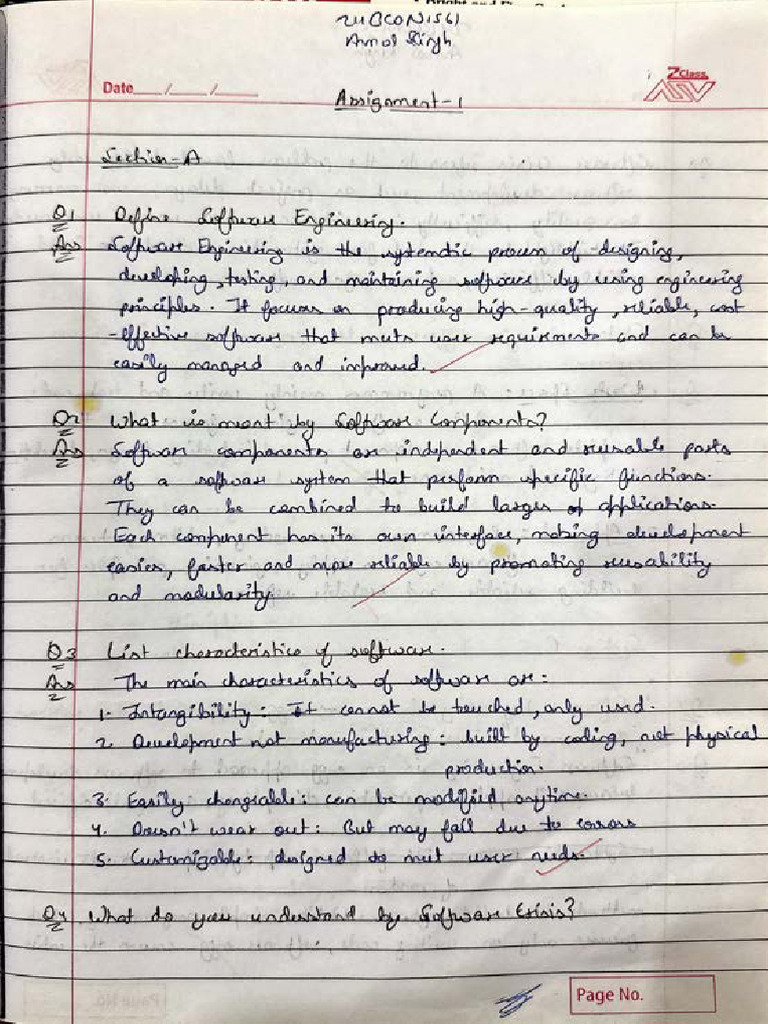 Amol Singh
Date___/___/___
Z Class
Assignment-1
Section-A
Q1 Define Software Engineering.
Ans Software Engineering is the systematic process of designing,
developing, testing, and maintaining software by using engineering
principles. It focuses on producing high-quality, reliable, cost
-effective software that meets user requirements and can be
easily managed and improved.
Q2 What is meant by Software Components?
Ans Software components are independent and reusable parts
of a software system that perform specific functions.
They can be combined to build larger applications.
Each component has its own interface, making development
easier, faster and more reliable by promoting reusability
and modularity.
Q3 List characteristics of software.
Ans The main characteristics of software are:
1. Intangibility: It cannot be touched, only used.
2. Development not manufacturing: built by coding, not physical
production.
3. Easily changeable: can be modified anytime.
4. Doesn't wear out: But may fail due to errors
5. Customizable: designed to meet user needs.
Q4 What do you understand by Software Crisis?
Page No.